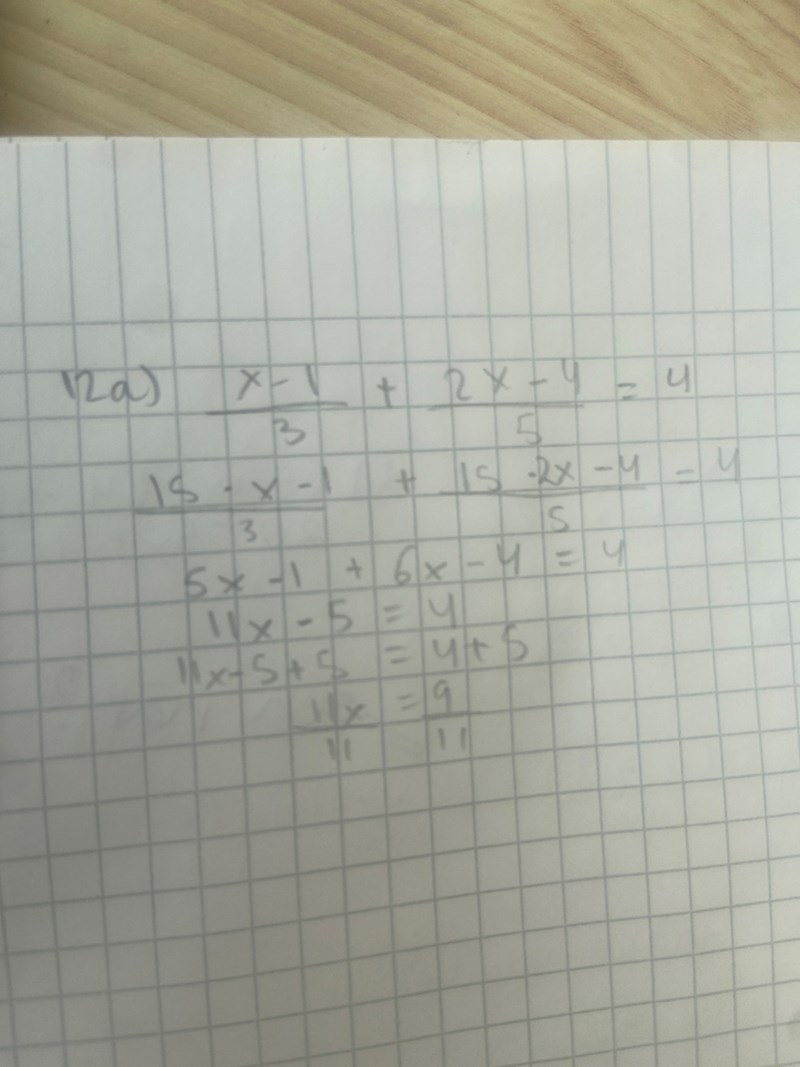 12a) x-1/3 + 2x-4/5 = 4
15·x-1/3 + 15·2x-4/5 = 4
5x-1 + 6x-4 = 4
11x-5 = 4
11x-5+5 = 4+5
11x/11 = 9/11